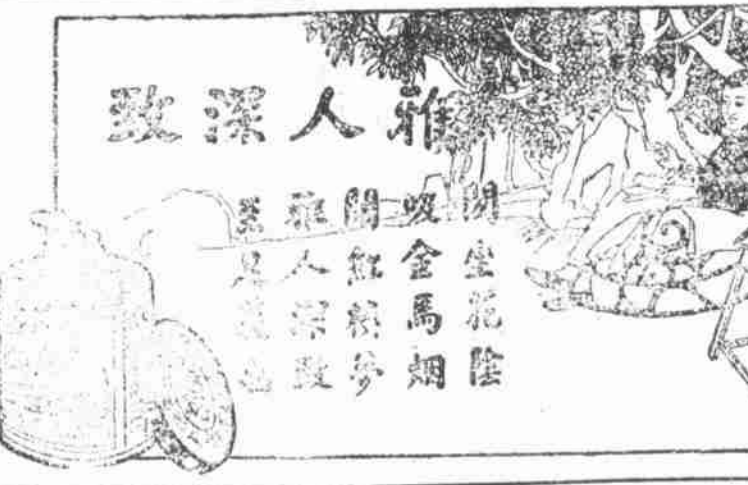 雅人深致
閒坐花陰
吸金馬烟
閱紅樓夢
雅人深致